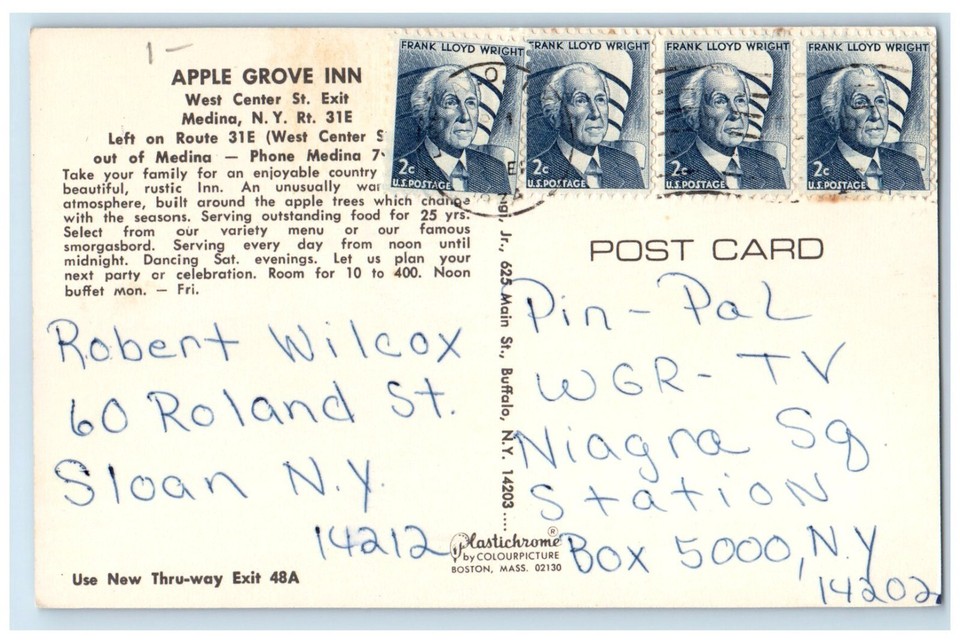 1 -
APPLE GROVE INN
West Center St. Exit
Medina, N.Y. Rt. 31E
Left on Route 31E (West Center S
out of Medina — Phone Medina 7
Take your family for an enjoyable country
beautiful, rustic Inn. An unusually
atmosphere, built around the apple trees which change
with the seasons. Serving outstanding food for 25 yrs.
Select from our variety menu or our famous
smorgasbord. Serving every day from noon until
midnight. Dancing Sat. evenings. Let us plan your
next party or celebration. Room for 10 to 400. Noon
buffet Mon. — Fri.
Robert Wilcox
60 Roland St.
Sloan N.Y.
14212
Use New Thru-way Exit 48A
Jr., 625 Main St., Buffalo, N.Y. 14203 ....
Plastichrome®
by COLOURPICTURE
BOSTON, MASS. 02130
FRANK LLOYD WRIGHT
2c
U.S. POSTAGE
FRANK LLOYD WRIGHT
2c
U.S. POSTAGE
FRANK LLOYD WRIGHT
2c
U.S. POSTAGE
FRANK LLOYD WRIGHT
2c
U.S. POSTAGE
POST CARD
Pin-Pal
WGR-TV
Niagra Sq.
Station
Box 5000, N.Y
14202